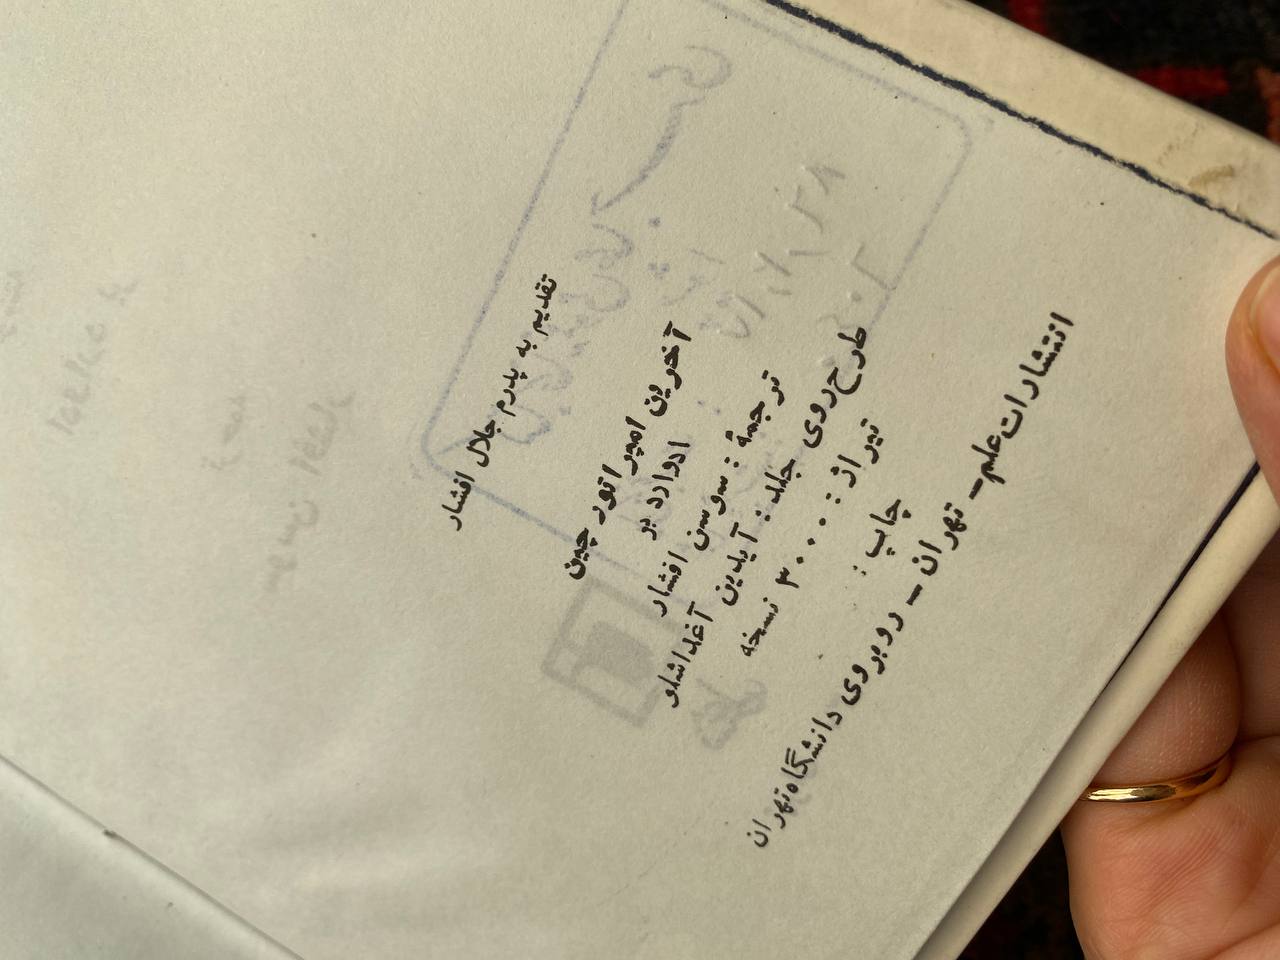 تقدیم به پدرم جلال افشار
آخرین امپراتور چین
ادوارد بر
ترجمهٔ : سوسن افشار
طرح روی جلد : آیدین آغداشلو
تیراژ : ۳۰۰۰ نسخه
چاپ :
انتشارات علم ـ تهران ـ روبروی دانشگاه تهران